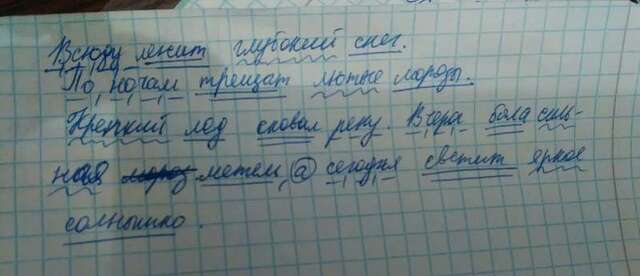 Всюду лежит глубокий снег.
По ночам трещат лютые морозы.
Крепкий лед сковал реку. Вчера была силь-
ная мороз метель, а сегодня светит яркое
солнышко.